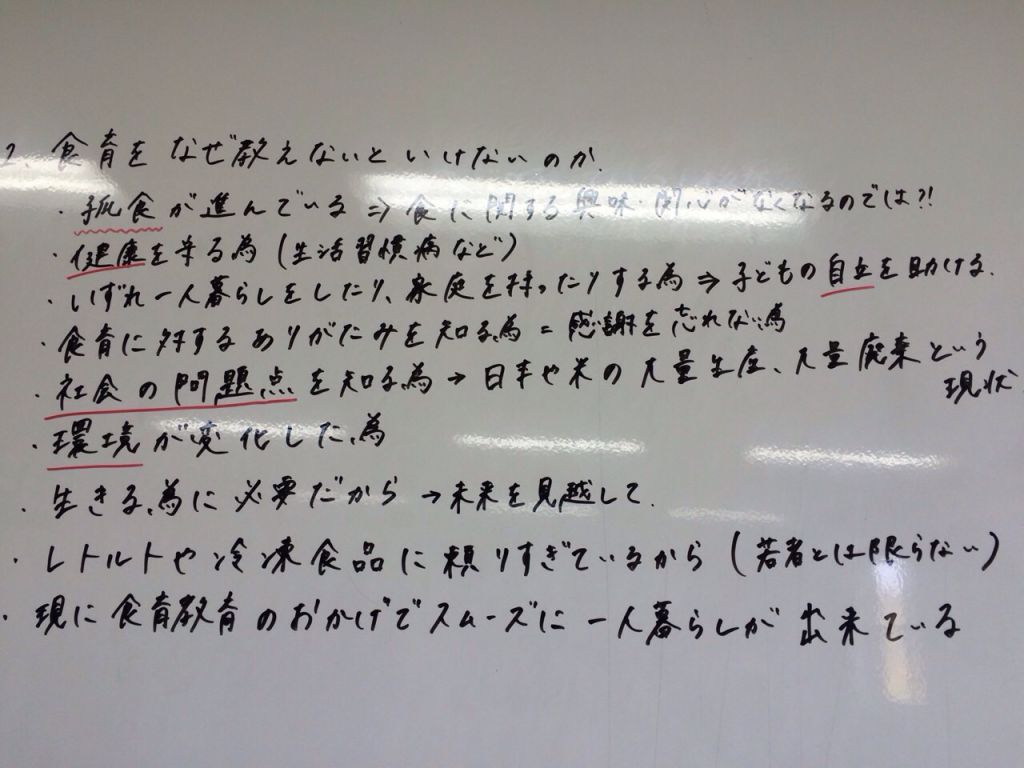 2. 食育をなぜ教えないといけないのか.
・孤食が進んでいる⇒食に関する興味・関心がなくなるのでは?!
・健康を守る為(生活習慣病など)
・いずれ一人暮らしをしたり、家庭を持ったりする為⇒子どもの自立を助ける.
・食育に対するありがたみを知る為=感謝を忘れない為
・社会の問題点を知る為→日本や米の大量生産、大量廃棄という
現状
・環境が変化した為
・生きる為に必要だから→未来を見越して.
・レトルトや冷凍食品に頼りすぎているから(若者とは限らない)
・現に食育教育のおかげでスムーズに一人暮らしが出来ている